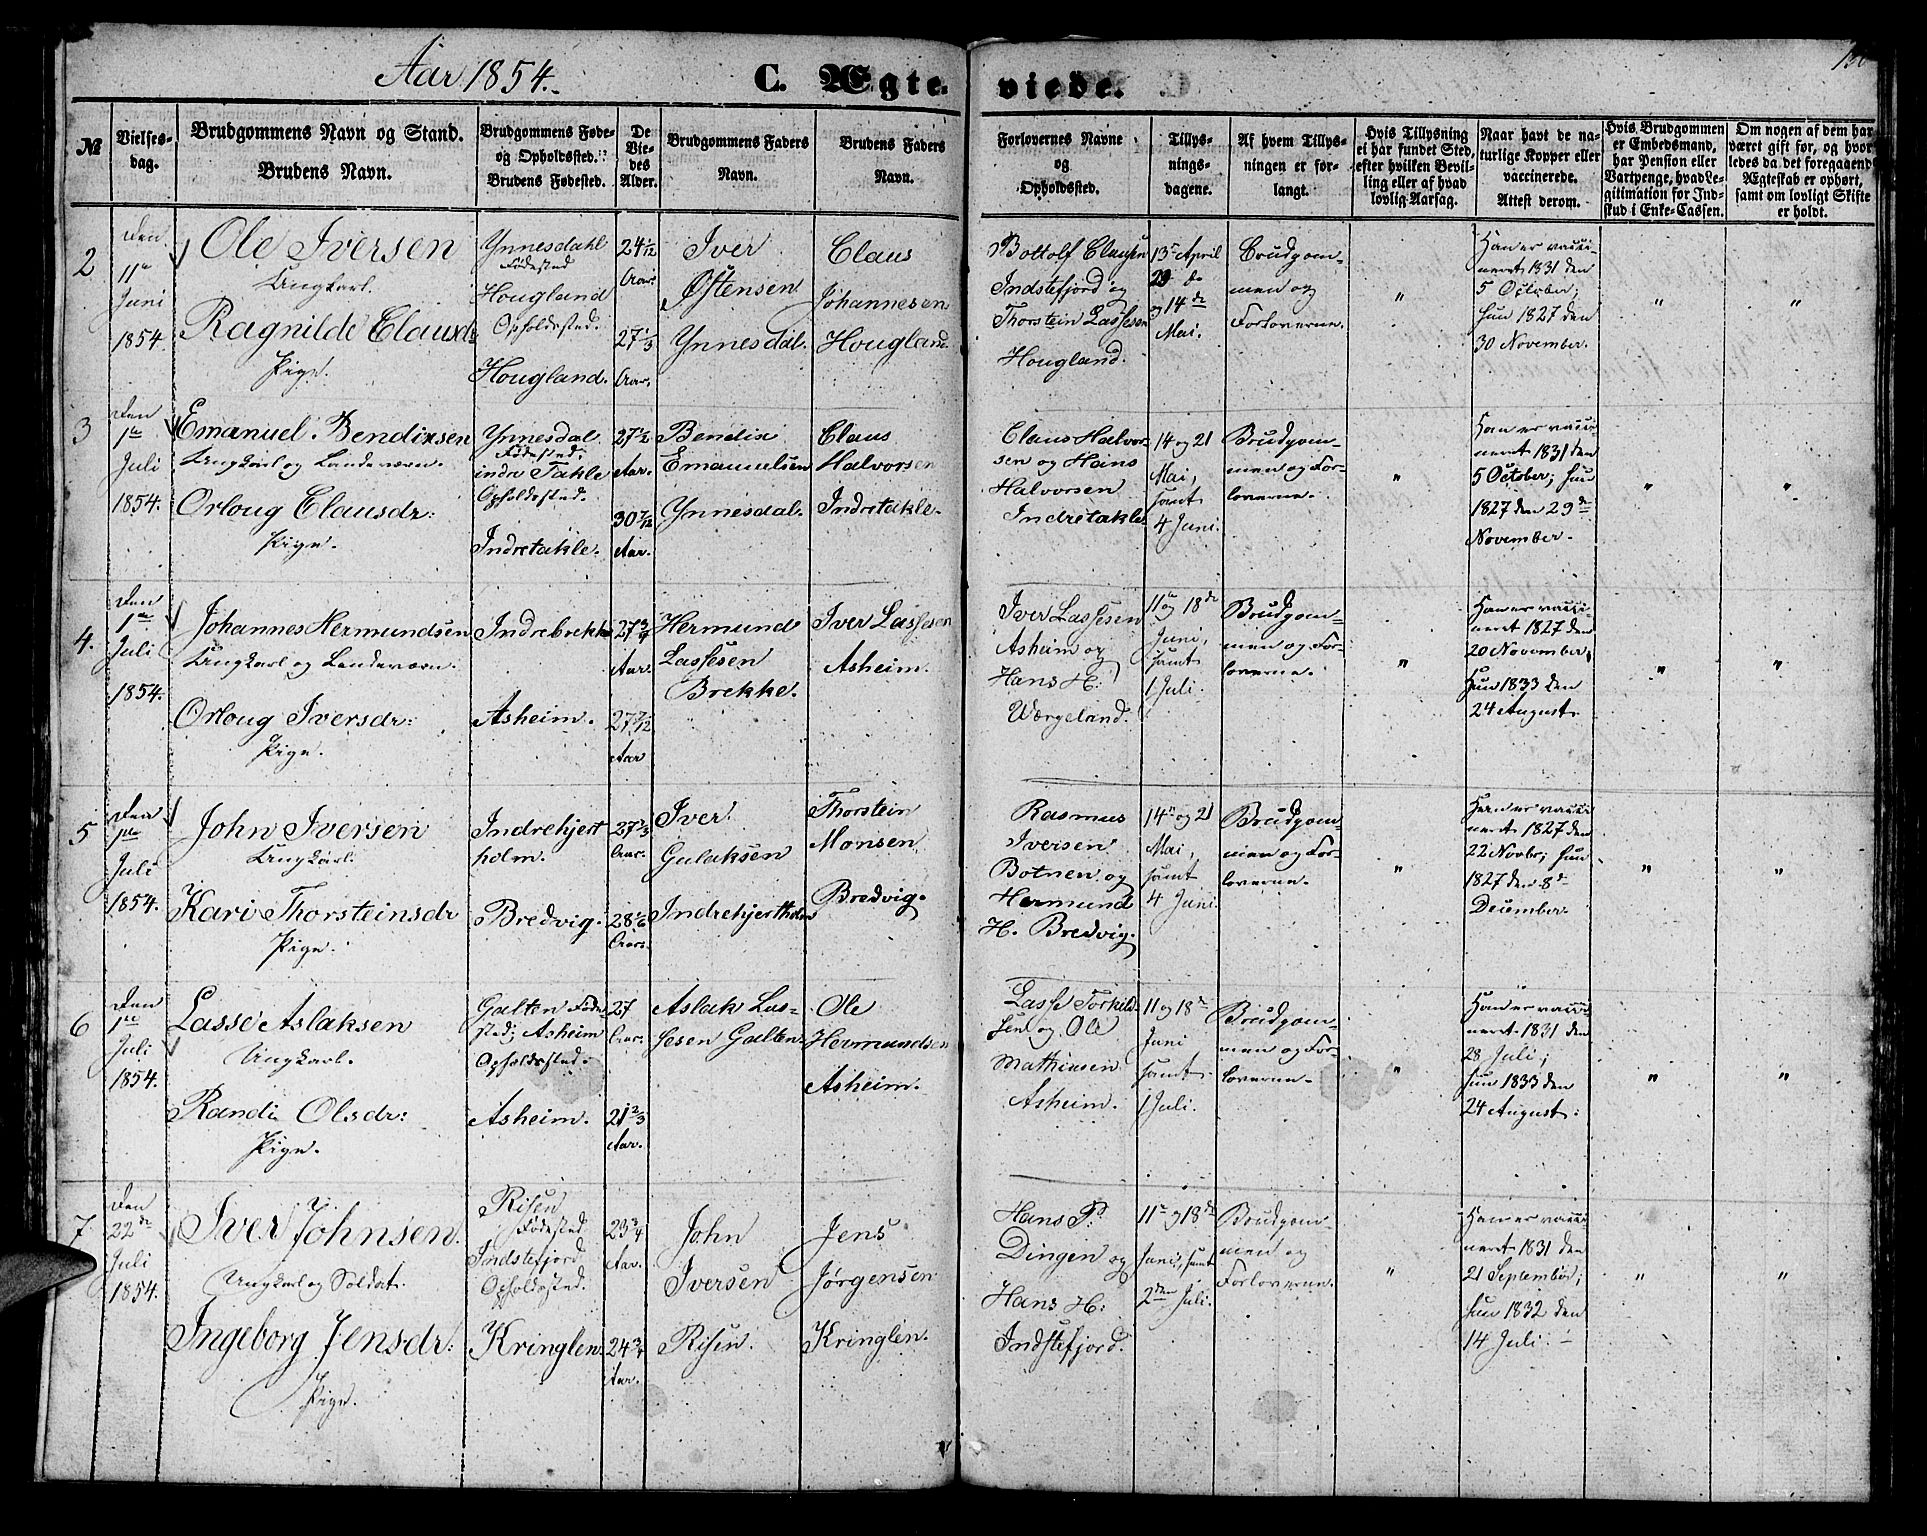 Aar 1854.
C. Ægte-
viede.
№
Vielses-
dag.
Brudgommens Navn og Stand.
Brudens Navn.
Brudgommens Føde-
og Opholdssted.
Brudens Fødested.
De
Vie-
des
Alder.
Brudgommens Faders
Navn.
Brudens Faders
Navn.
Forlovernes Navne
og
Opholdssted.
Tillys-
nings-
dagene.
Af hvem Tillys-
ningen er for-
langt.
Hvis Tillysning
ei har fundet Sted,
efter hvilken Bevil-
ling eller af hvad
lovlig Aarsag.
Naar havt de na-
turlige Kopper eller
vaccinerede.
Attest derom.
Hvis Brudgommen
er Embedsmand,
har Pension eller
Vartpenge, hvad Le-
gitimation for Ind-
skud i Enke-Cassen.
Om nogen af dem har
været gift før, og hvor-
ledes da det foregaaende
Ægteskab er ophørt,
samt om lovligt Skifte
er holdt.
2
den
11te
Juni
1854.
Ole Iversen
Ungkarl.
Ragnilde Clausdr
Pige.
Ynnesdahl
Fødested
Hougland
Opholdssted.
Hougland.
24 1/12
Aar.
27 1/3
Aar.
Iver
Østensen
Ynnesdal.
Claus
Johannesen
Hougland.
Bottolf Clausen
Indstefjord og
Thorstein Lassesen
Hougland.
13de April
og 14de
Mai.
Brudgom-
men og
Forloverne.
"
Han er vacci-
neret 1831 den
5 October;
hun 1827 den
30 November.
"
"
3
den
1te
Juli
1854.
Emanuel Bendixsen
Ungkarl og Landeværn.
Orloug Clausdr:
Pige.
Ynnesdal
Fødested;
indre Takle
Opholdssted.
Indretakle.
27 1/2
Aar.
30 7/12
Aar.
Bendix
Emanuelsen
Ynnesdal.
Claus
Halvorsen
Indretakle.
Claus Halvor-
sen og Hans
Halvorsen
Indretakle
14 og 21
Mai,
samt
4 Juni.
Brudgom-
men og For-
loverne.
"
Han er vacci-
neret 1831
5 October; hun
1827 den 29de
November.
"
"
4.
den
1te
Juli
1854.
Johannes Hermundsen
Ungkarl og Landeværn.
Orloug Iversdr:
Pige.
Indrebrekke
Asheim.
27 3/4
Aar.
27 7/12
Aar
Hermund
Lassesen
Brekke.
Iver Lassesen
Asheim.
Iver Lassesen
Asheim og
Hans H:
Wergeland.
11te og 18de
Juni,
samt
1 Juli.
Brudgom-
men og For-
loverne.
"
Han er vacci-
neret 1827 den
20 November,
hun 1833 den
24 August.
"
"
5
den
1te
Juli
1854.
John Iversen
Ungkarl.
Kari Thorsteinsdr
Pige.
Indrehjert
holm.
Bredvig.
27 2/3
Aar.
28 1/6
Aar.
Iver
Gulaksen
Indrehjertholm
Thorstein
Monsen
Bredvig.
Rasmus
Iversen
Botnen og
Hermund
H. Bredvig.
14de og 21
Mai,
samt
4 Juni.
Brudgom-
men og For-
loverne.
"
Han er vacci-
neret 1827 den
22 Novbr; hun
1827 den 8de
December.
"
"
6
den
1te
Juli
1854.
Lasse Aslaksen
Ungkarl.
Randi Olsdr:
Pige.
Galten Føde-
sted; Asheim
Opholdssted.
Asheim.
27
Aar.
21 2/3
Aar.
Aslak Las-
sesen Galten.
Ole
Hermundsen
Asheim.
Lasse Torkild-
sen og Ole
Mathiesen
Asheim.
11 og 18de
Juni
samt
1 Juli.
Brudgom-
men og For-
loverne.
"
Han er vacci-
neret 1831 den
28 Juli;
hun 1833 den
24 August.
"
"
7
den
22de
Juli
1854.
Iver Johnsen.
Ungkarl og Soldat.
Ingeborg Jensdr:
Pige.
Risen
Fødested
Indstefjord
Opholdssted.
Kringlen.
23 3/4
Aar.
24 3/4
Aar.
John
Iversen
Risen.
Jens
Jørgensen
Kringlen.
Hans P.
Dingen og
Hans H:
Indstefjord.
11te og 18de
Juni, samt
2den Juli.
Brudgom-
men og
Forloverne.
"
Han er vacci-
neret 1831 den
21 September;
hun 1832 den
14 Juli.
"
"